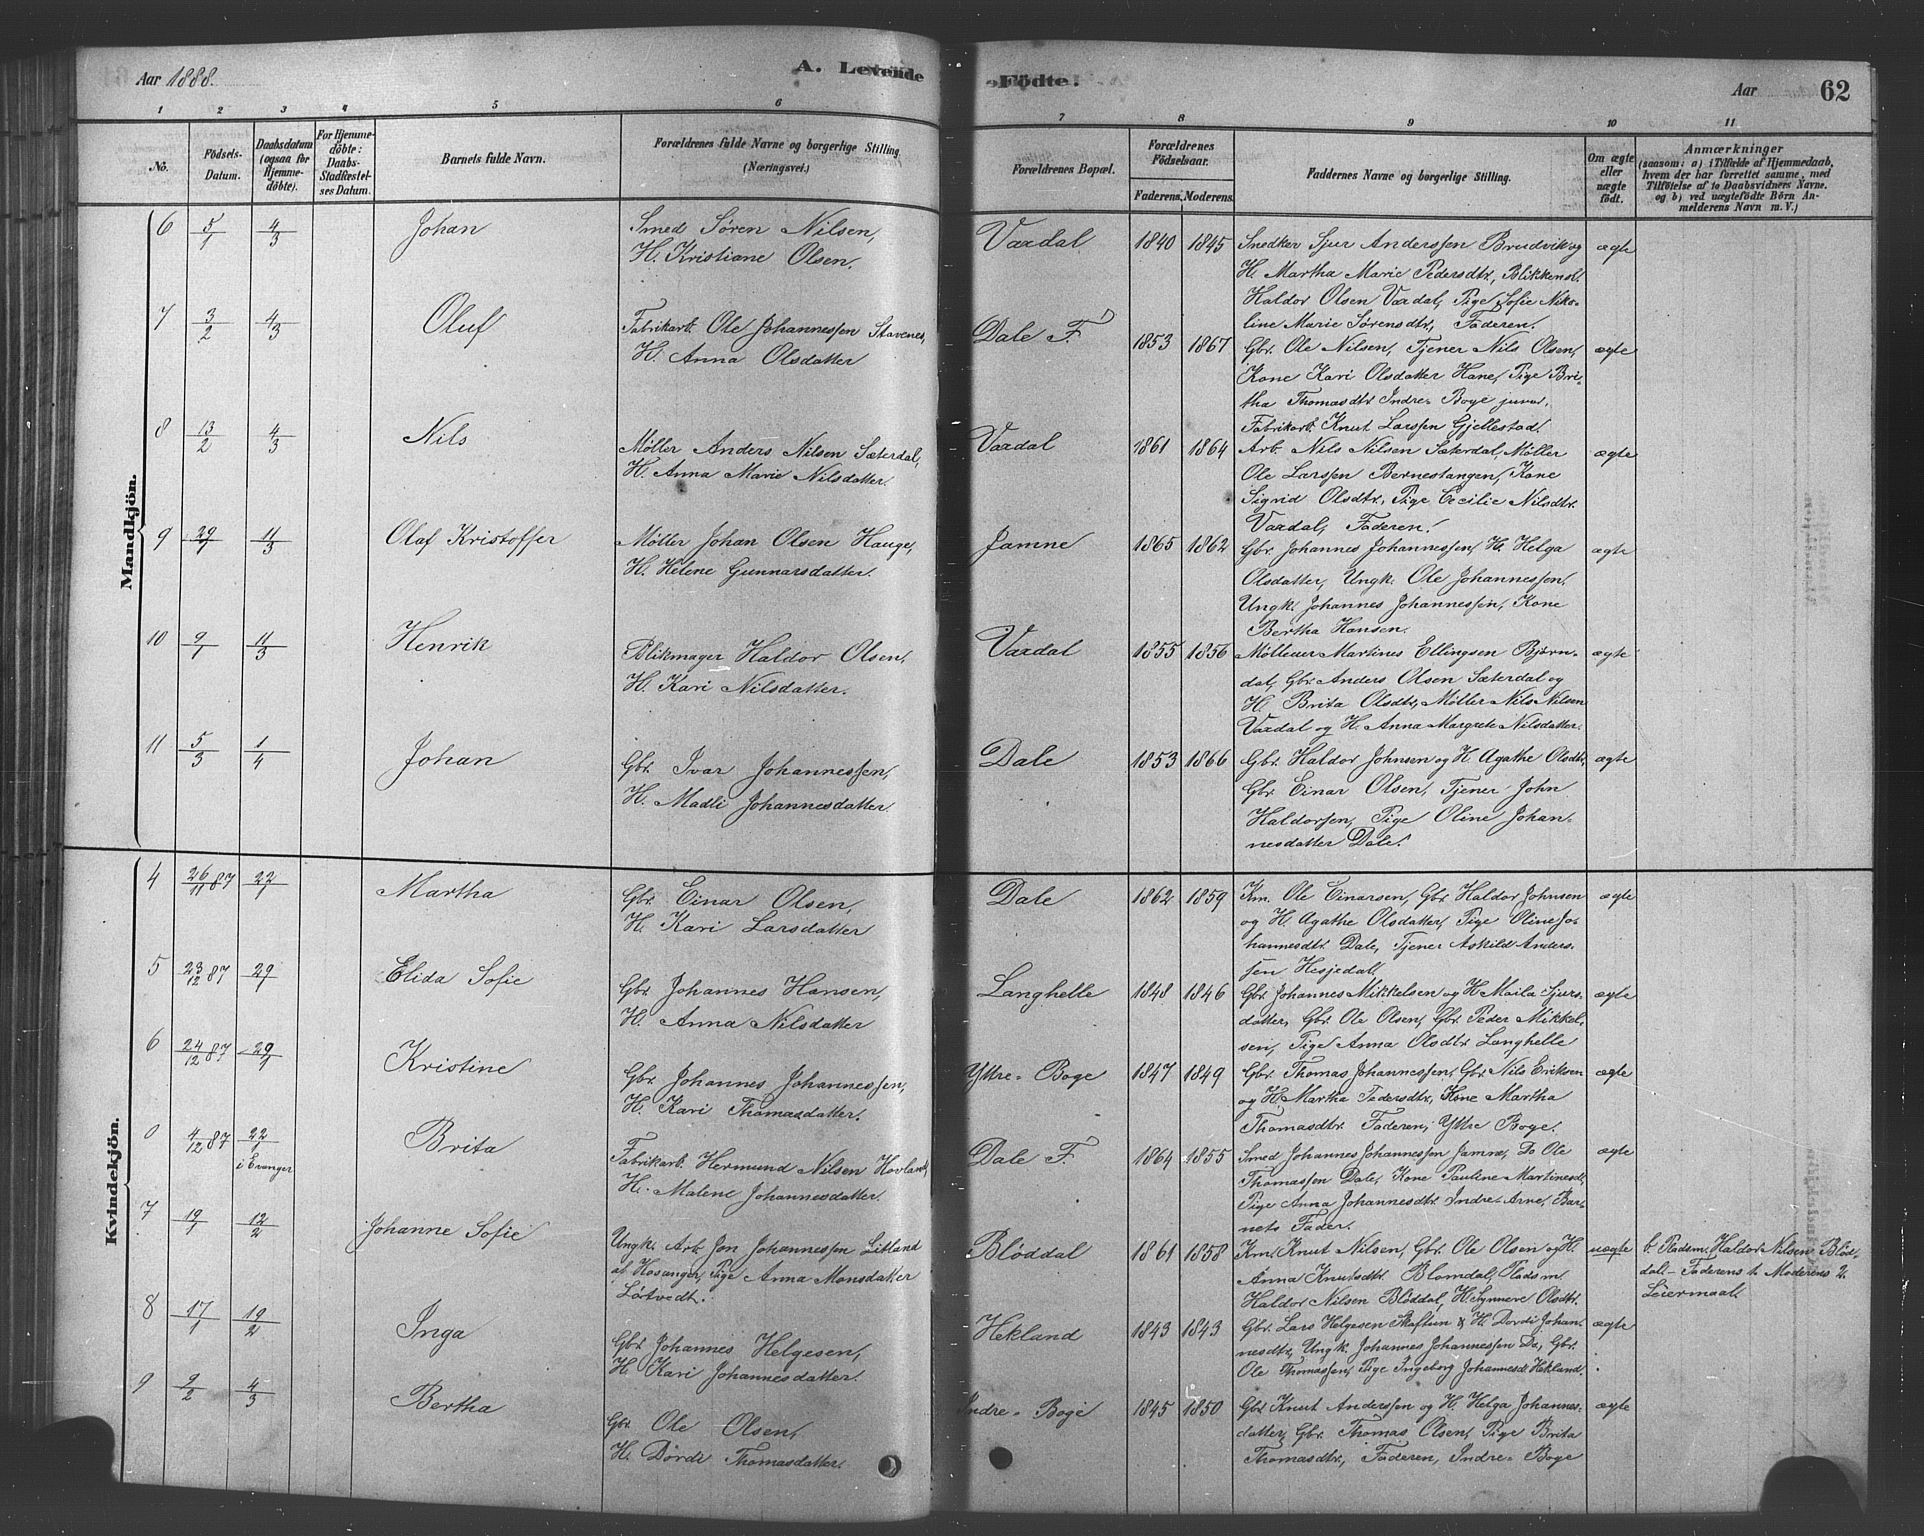 Aar 1888.
A. Levende Födte.
Aar
62
1 2 3 4 5 6 7 8 9 10 11
No.
Födsels-
Datum.
Daabsdatum
(ogsaa for
Hjemme-
döbte).
For Hjemme-
döbte:
Daabs-
Stadfæstel-
ses Datum.
Barnets fulde Navn.
Forældrenes fulde Navne og borgerlige Stilling.
(Næringsvei.)
Forældrenes Bopæl.
Forældrenes
Födselsaar.
Faderens. Moderens.
Faddernes Navne og borgerlige Stilling.
Om ægte
eller
uægte
födt.
Anmærkninger
(saasom: a) i Tilfælde af Hjemmedaab,
hvem der har forrettet samme, med
Tilföielse af to Daabsvidners Navne.
og b) ved uægtefödte Börn An-
melderens Navn m. V.)
Mandkjön.
6 5/1 4/3 Johan
Smed Søren Nilsen,
H. Kristiane Olsen.
Vaxdal 1840 1845
Snedker Sjur Anderssen Brudvik og
H. Martha Marie Pedersdtr, Blikkensl.
Haldor Olsen Vaxdal, Pige Sofie Niko-
line Marie Sørensdtr, Faderen.
ægte
7 3/2 4/3 Oluf
Fabrikarb. Ole Johannessen Stavenes,
H. Anna Olsdatter
Dale F. 1853 1867
Gbr. Ole Nilsen, Tjener Nils Olsen,
Kone Kari Olsdatter Hane, Pige Bri-
tha Thomasdtr Indre-Boge
Fabrikarb. Knut Larssen Gjellestad.
ægte
8 13/2 4/3 Nils
Møller Anders Nilsen Sæterdal,
H. Anna Marie Nilsdatter.
Vaxdal 1861 1864
Arb. Nils Nilsen Sæterdal, Møller
Ole Larssen Bernestangen, Kone
Sigrid Olsdtr, Pige Cecilie Nilsdtr.
Vaxdal, Faderen.
ægte
9 29/1 11/3 Olaf Kristoffer
Møller Johan Olsen Hauge,
H. Helene Gunnarsdatter.
Jamne 1865 1862
Gbr. Johannes Johannessen, H. Helga
Olsdatter, Ungk. Ole Johannessen,
Ungk. Johannes Johannessen, Kone
Bertha Hansen.
ægte
10 9/1 11/3 Henrik
Blikmager Haldor Olsen,
H. Kari Nilsdatter.
Vaxdal 1855 1856
Mølleier Martines Ellingsen Bjørn-
dal, Gbr. Anders Olsen Sæterdal og
H. Brita Olsdtr, Møller Nils Nilsen
Vaxdal og H. Anna Margrete Nilsdatter.
ægte
11 5/3 1/4 Johan
Gbr. Ivar Johannessen,
H. Madli Johannesdatter.
Dale 1853 1866
Gbr. Haldor Johnsen og H. Agathe Olsdtr,
Gbr. Einar Olsen, Tjener John
Haldorsen, Pige Oline Johan-
nesdatter Dale.
ægte
Kvindekjön.
4 26/11 87 22/1 Martha
Gbr. Einar Olsen,
H. Kari Larsdatter
Dale 1862 1859
Km. Ole Einarsen, Gbr. Haldor Johnsen
og H. Agathe Olsdatter, Pige Oline Jo-
hannesdtr. Dale, Tjener Askild Anders-
sen Hesjedal.
ægte
5 23/12 87 29/1 Elida Sofie
Gbr. Johannes Hansen,
H. Anna Nilsdatter
Langhelle 1848 1846
Gbr. Johannes Mikkelsen og H. Maila Sjurs-
datter, Gbr. Ole Olsen, Gbr. Peder Mikkel-
sen, Pige Anna Olsdtr Langhelle
ægte
6 24/12 87 29/1 Kristine
Gbr. Johannes Johannessen,
H. Kari Thomasdatter.
Yttre-Boge 1847 1849
Gbr. Thomas Johannessen, Gbr. Nils Eriksen
og H. Martha Pedersdtr, Kone Martha
Thomasdtr Faderen, Yttre Boge.
ægte
0 4/12 87 22/1 i Evanger Brita
Fabrikarb. Hermund Nilsen Hovland,
H. Malene Johannesdatter.
Dale F. 1864 1855
Smed Johannes Johannessen Jamne, Do Ole
Thomassen Dale, Kone Pauline Martinesd.
Pige Anna Johannesdtr. Indre-Arne, Bar-
nets Fader.
ægte
7 19/1 12/2 Johanne Sofie
Ungk. Arb. Jon Johannessen Litland
af Hosanger, Pige Anna Monsdatter
Lørtvedt.
Bløddal 1861 1858
Km. Knut Nilsen, Gbr. Ole Olsen og H.
Anna Knutsdtr. Blomdal, Pladsm.
Haldor Nilsen Bløddal, H. Synneve Olsdtr.
uægte
b. Pladsm. Haldor Nilsen Blød-
dal - Faderens 1. Moderens 2.
Leiermaal.
8 17/1 19/2 Inga
Gbr. Johannes Helgesen,
H. Kari Johannesdatter.
Hekland 1843 1843
Gbr. Lars Helgesen Skaftun & H. Dordi Johan-
nesdtr, Ungk. Johannes Johannessen Do, Gbr.
Ole Thomassen, Pige Ingeborg Johannesdt Hekland.
ægte
9 9/2 4/3 Bertha
Gbr. Ole Olsen,
H. Dördi Thomasdatter.
Indre-Boge 1845 1850
Gbr. Knut Anderssen og H. Helga Johannes-
datter, Gbr. Thomas Olsen, Pige Brita
Thomasdtr, Faderen, Indre-Boge
ægte